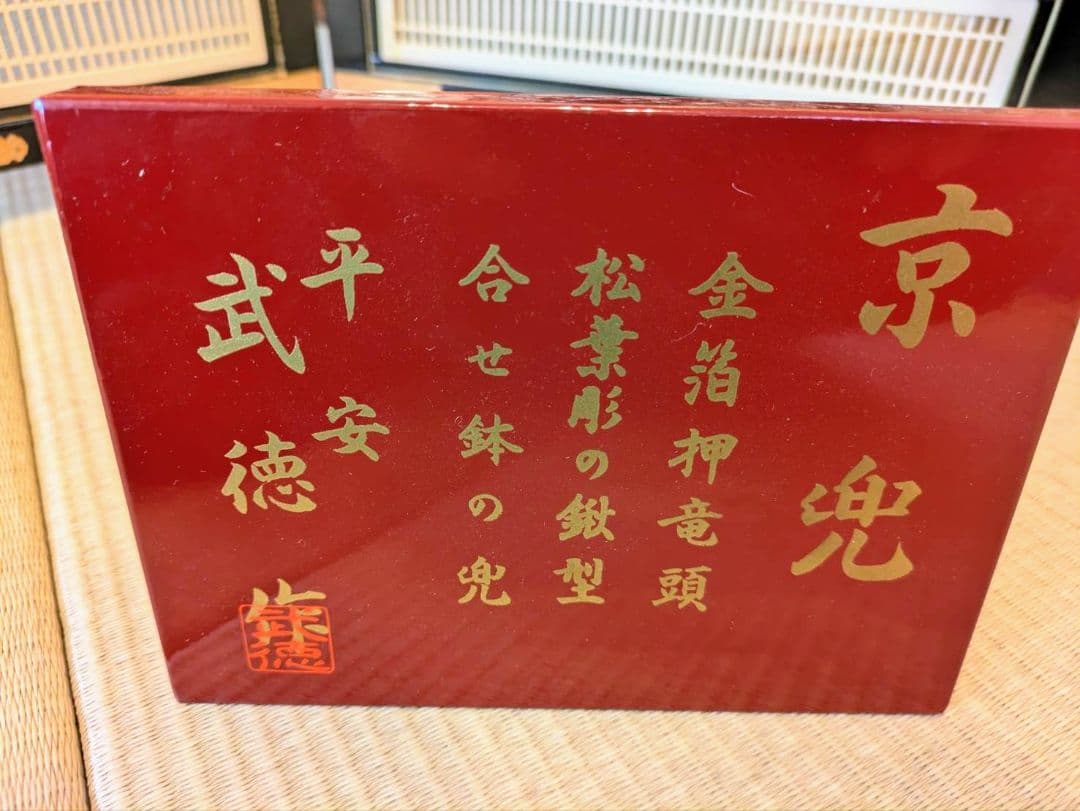 京兜
金箔押竜頭
松葉彫の鍬型
合せ鉢の兜
平安
武徳作
武徳